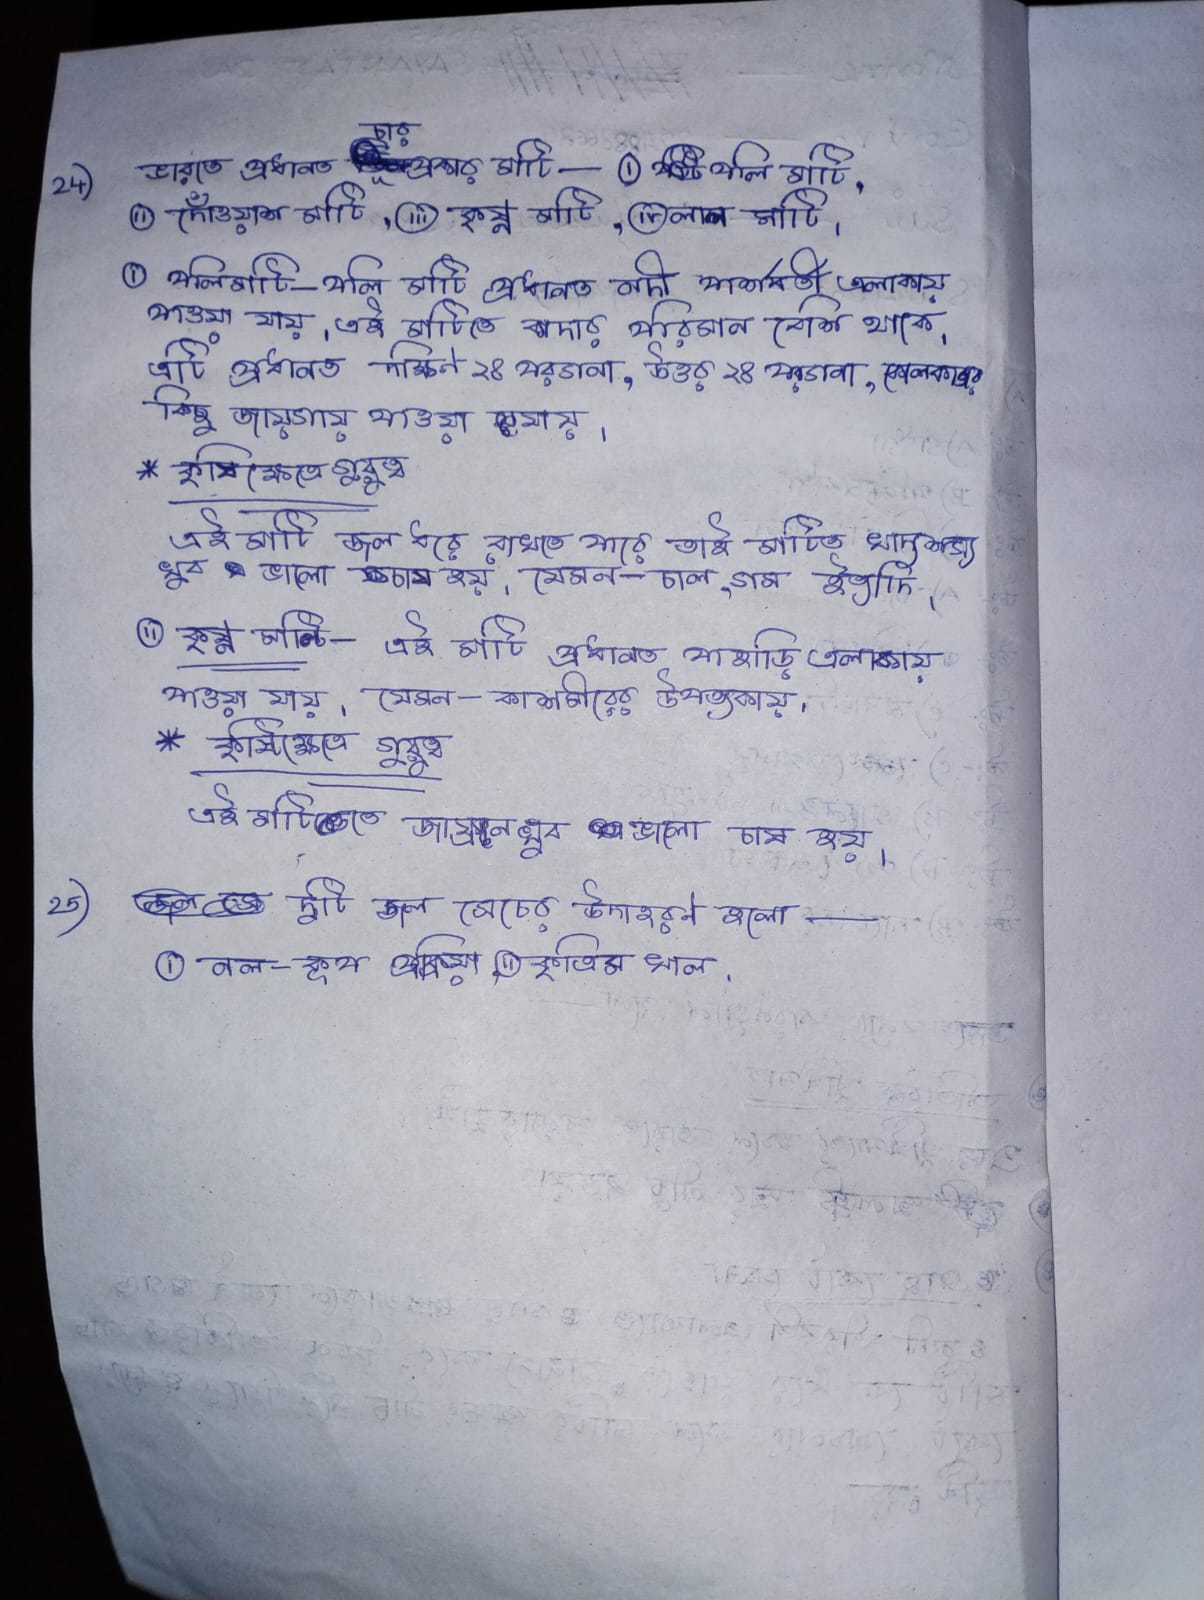 চার
24) ভারতে প্রধানত প্রকার মাটি — ⓘ পলি মাটি,
ⓘⓘ দোঁওয়াশ মাটি, ⓘⓘⓘ কৃষ্ণ মাটি, ⓘⓥ লাল মাটি।
ⓘ পলিমাটি – পলি মাটি প্রধানত নদী পার্শ্ববর্তী এলাকায়
পাওয়া যায়, এই মাটিতে কাদার পরিমান বেশি থাকে,
এটি প্রধানত দক্ষিণ ২৪ পরগানা, উত্তর ২৪ পরগানা, কোলকাতার
কিছু জায়গায় পাওয়া যায়।
* কৃষিক্ষেত্রে গুরুত্ব
এই মাটি জল ধরে রাখতে পারে তাই মাটিতে খাদ্যশস্য
খুব ভালো চাষ হয়, যেমন – চাল, গম ইত্যাদি।
ⓘⓘ কৃষ্ণ মাটি – এই মাটি প্রধানত পাহাড়ি এলাকায়
পাওয়া যায়, যেমন – কাশমীরের উপত্যকায়।
* কৃষিক্ষেত্রে গুরুত্ব
এই মাটিতে জাফ্রান খুব ভালো চাষ হয়।
25) দুটি জল সেচের উদাহরণ হলো —
ⓘ নল-কূপ প্রক্রিয়া, ⓘⓘ কৃত্রিম খাল।